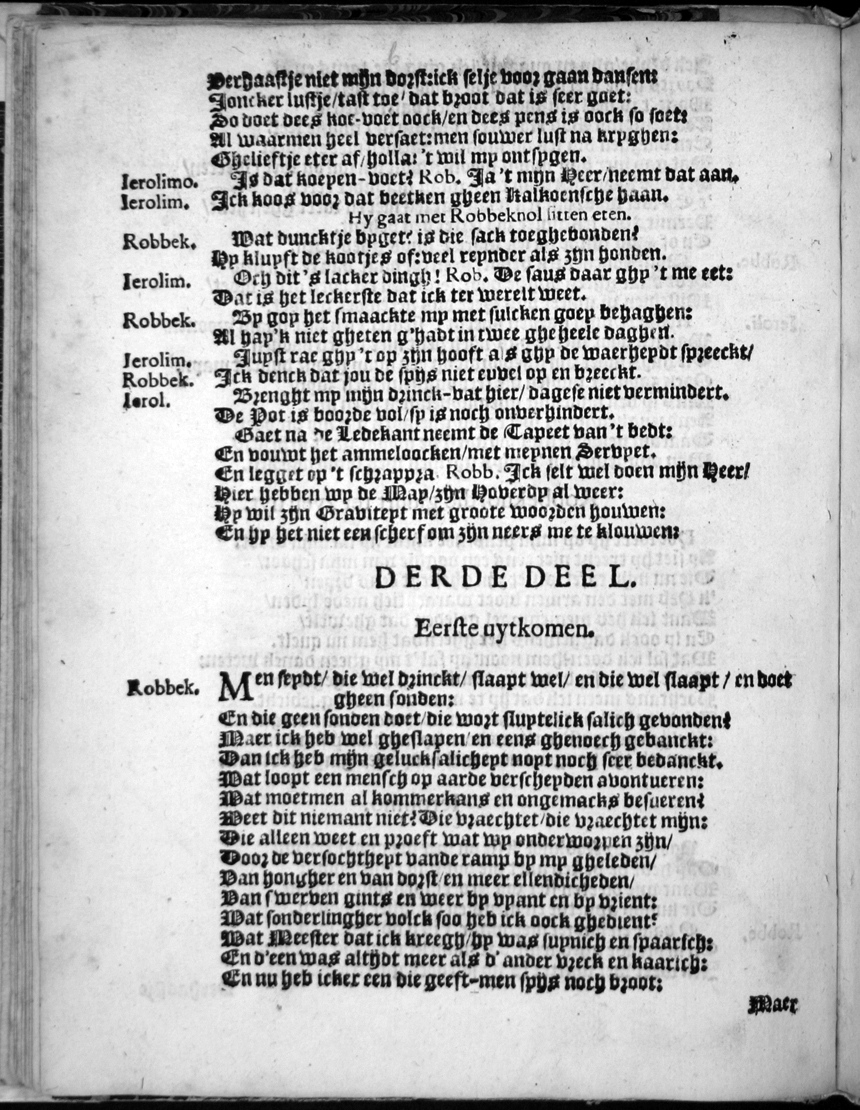 Verhaastje niet mijn dorst: ick selje voor gaan dansen:
Joncker lustje/ tast toe/ dat broot dat is seer goet:
So doet dees koe-voet oock/ en dees pens is oock so soet:
Al waarmen heel versaet: men souwer lust na kryghen:
Ghelieftje eter af/ holla: 't wil my ontsygen.
Ierolimo. Is dat koepen-voet? Rob. Ja 't mijn Heer/ neemt dat aan.
Ierolim. Ick koos voor dat beetken gheen Kalkoensche haan.
Hy gaat met Robbeknol sitten eten.
Robbek. Wat duncktje byget? is die sack toeghebonden?
Hy kluyft de kootjes of: veel reynder als zijn honden.
Ierolim. Och dit 's lacker dingh! Rob. De saus daar ghy 't me eet:
Dat is het leckerste dat ick ter werelt weet.
Robbek. By gop het smaackte my met sulcken goey behaghen:
Al hap'k niet gheten g'hadt in twee gheheele daghen.
Ierolim. Juyst rae ghy 't op zijn hooft als ghy de waerheydt spreeckt/
Robbek. Ick denck dat jou de spijs niet euvel op en breeckt.
Ierol. Brenght my mijn drinck-vat hier/ dagese niet vermindert.
De Pot is boorde vol/ sy is noch onverhindert.
Gaet na de Ledekant neemt de Tapeet van 't bedt:
En vouwt het ammeloocken/ met meynen Servyet.
En legget op 't schrappra. Robb. Ick selt wel doen mijn Heer/
Hier hebben wy de May/ zijn Hoverdy al weer:
Hy wil zijn Graviteyt met groote woorden houwen:
En hy het niet een scherf om zijn neers me te klouwen:
DERDE DEEL.
Eerste uytkomen.
Robbek. Men seydt/ die wel drinckt/ slaapt wel/ en die wel slaapt / en doet
gheen sonden:
En die geen sonden doet/ die wort sluytelick salich gevonden?
Maer ick heb wel gheslapen/ en eens ghenoech gebanckt:
Dan ick heb mijn gelucksalicheyt noyt noch seer bedanckt.
Wat loopt een mensch op aarde verscheyden avontueren:
Wat moetmen al kommerkans en ongemacks besueren?
Weet dit niemant niet? Die vraechtet/ die vraechtet mijn:
Die alleen weet en proeft wat wy onderworpen zijn/
Door de versochtheyt vande ramp by my gheleden/
Van hongher en van dorst/ en meer ellendicheden/
Van swerven gints en weer by vyant en by vrient:
Wat sonderlingher volck soo heb ick oock ghedient?
Wat Meester dat ick kreegh/ hy was suynich en spaarsch:
En d'een was altijdt meer als d' ander vreck en kaarich:
En nu heb icker een die geeft-men spijs noch broot:
Maer